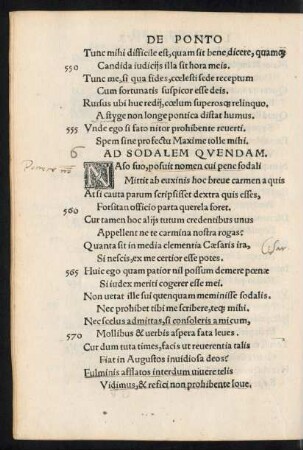 DE PONTO
Tunc mihi difficile est, quam sit bene, dicere, quamꝙ
550 Candida iudicijs illa sit hora meis.
Tunc me, si qua fides, cœlesti sede receptum
Cum fortunatis suspicor esse deis.
Rursus ubi huc redij, cœlum superosꝙ relinquo,
A styge non longe pontica distat humus.
555 Vnde ego si fato nitor prohibente reuerti.
Spem sine profectu Maxime tolle mihi.
6
AD SODALEM QVENDAM.
NAso suo, posuit nomen cui pene sodali
Mittit ab euxinis hoc breue carmen aquis
At si cauta parum scripsisset dextra quis esses,
560 Forsitan officio parta querela foret.
Cur tamen hoc alijs tutum credentibus unus
Appellent ne te carmina nostra rogas?
Quanta sit in media clementia Cæsaris ira,
Cæsar
Si nescis, ex me certior esse potes.
565 Huic ego quam patior nil possum demere pœnæ
Si iudex meriti cogerer esse mei.
Non uetat ille sui quenquam meminisse sodalis.
Nec prohibet tibi me scribere, teqꝫ mihi.
Nec scelus admittas, si consoleris amicum,
570 Mollibus & uerbis aspera fata leues.
Cur dum tuta times, facis ut reuerentia talis
Fiat in Augustos inuidiosa deos?
Fulminis afflatos interdum uiuere telis
Vidimus, & refici non prohibente Ioue.